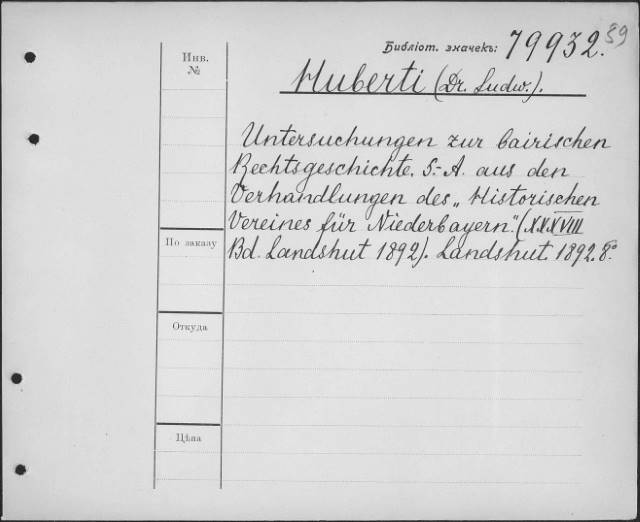 89
Библіот. значекъ: 79932.
Инв.
№
Huberti (Dr. Ludw.).
Untersuchungen zur bairischen
Rechtsgeschichte. S.-A. aus den
Verhandlungen des „Historischen
Vereines für Niederbayern." (XXXVIII
По заказу
Bd. Landshut 1892). Landshut. 1892. 8º
Откуда
Цѣна